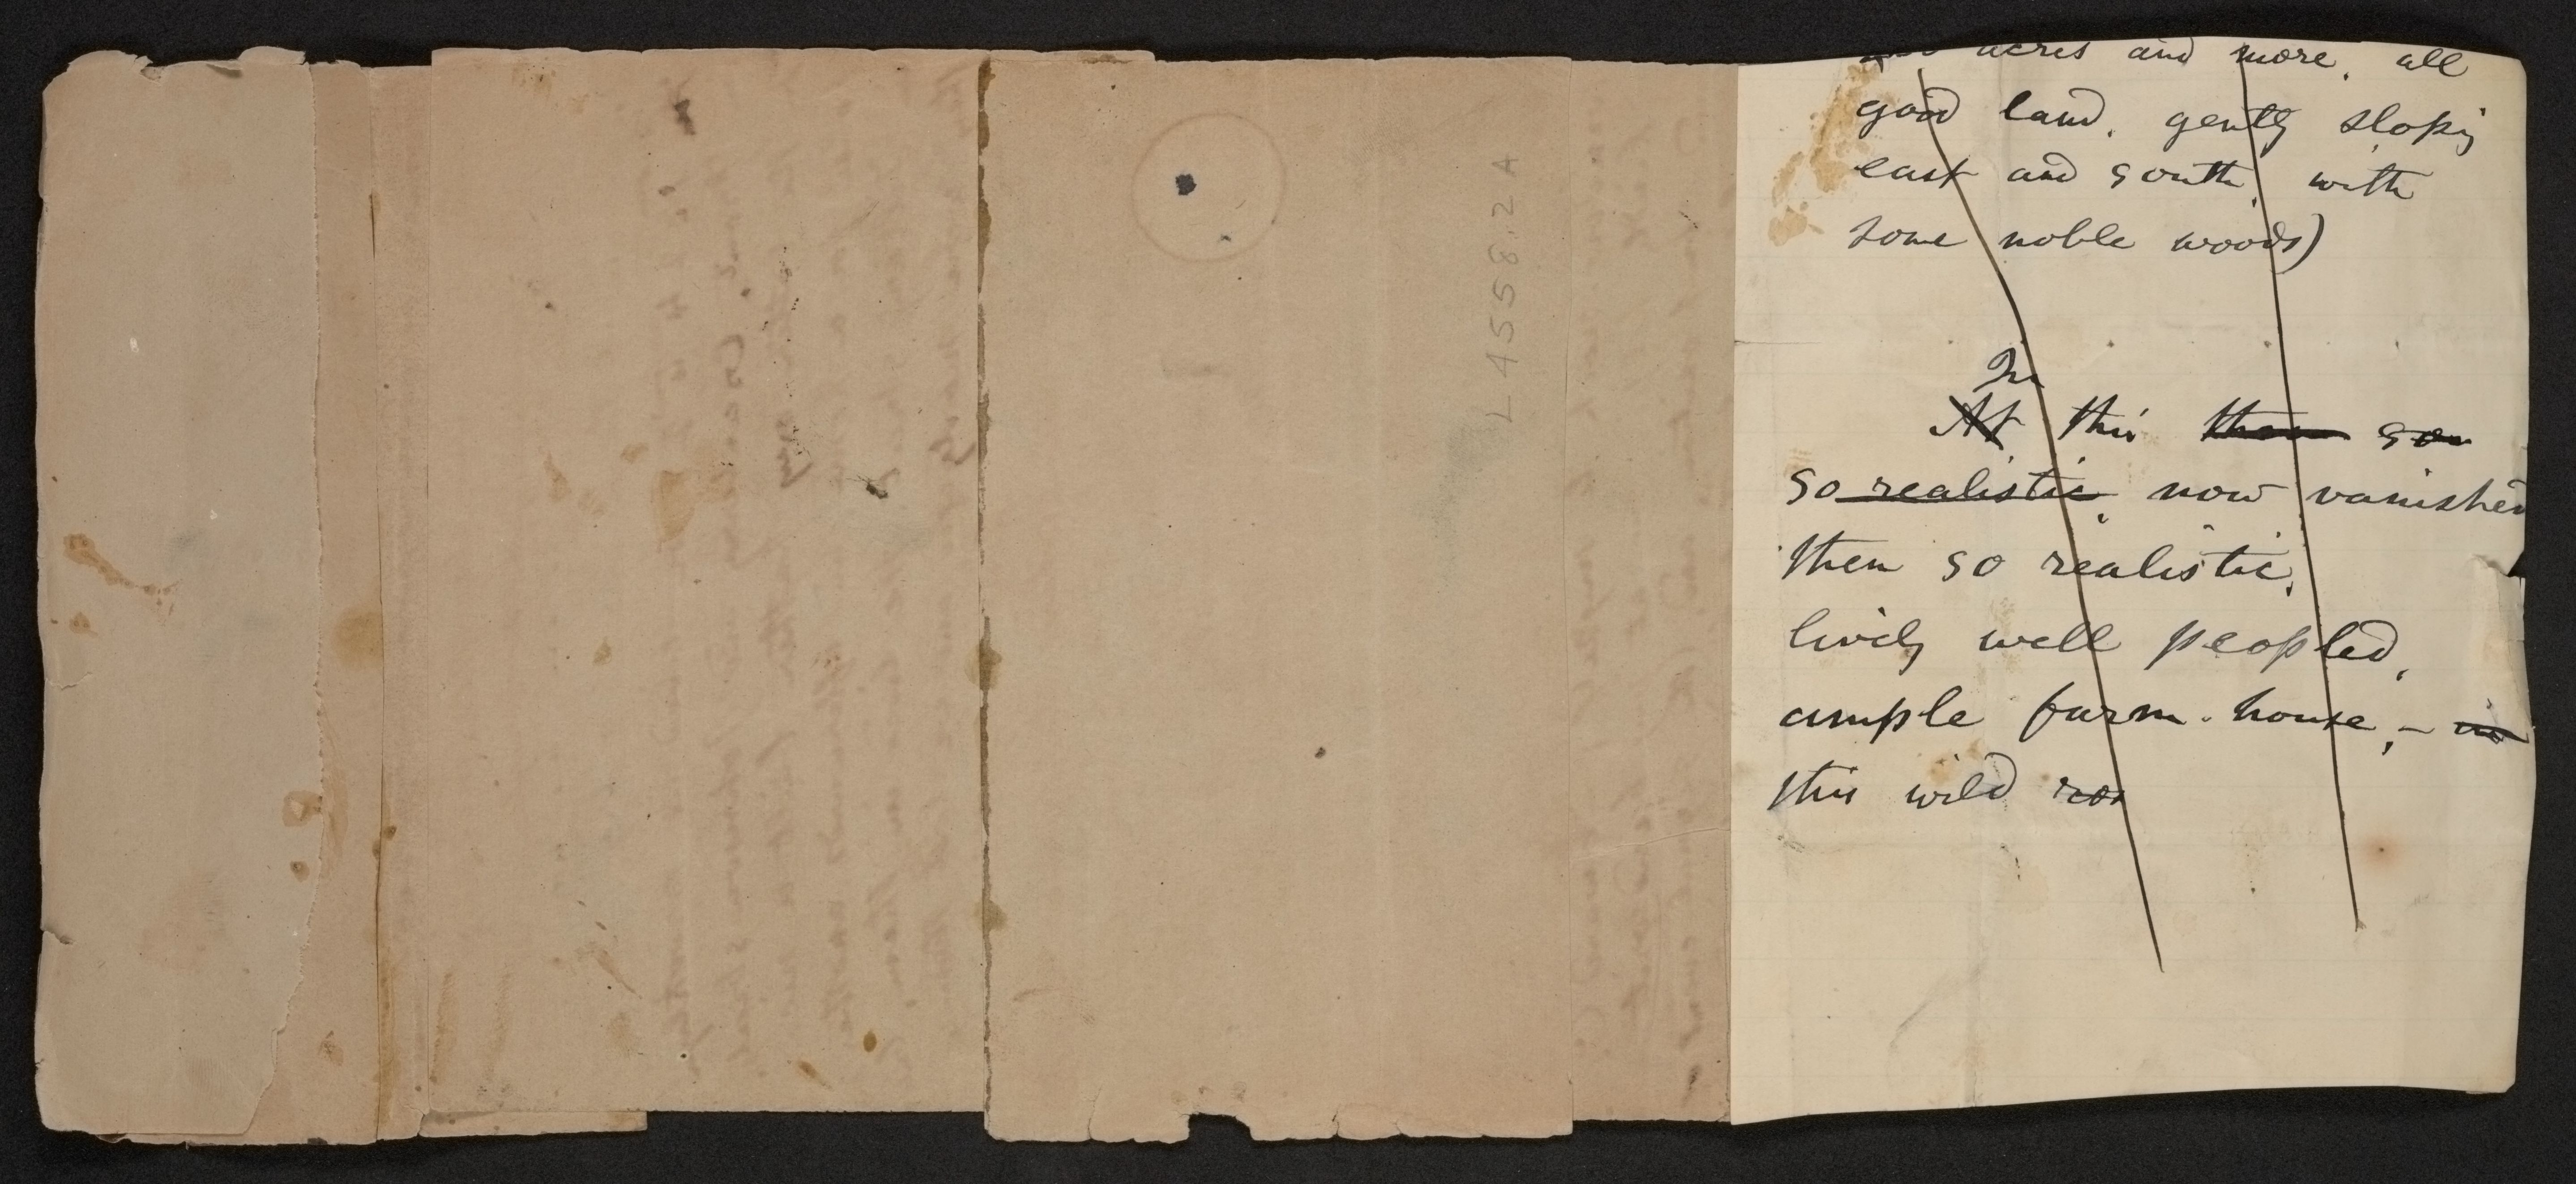 acres and more, all
good land, gently slopig
east and south, with
some noble woods)
In
At this them son
so realistic, now vanished
then so realistic,
lively well peopled,
ample farm-house, – in
this wild ros
L4558.2A